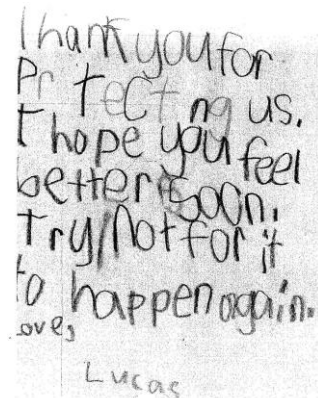 Thank you for
Pr tecting us.
I hope you feel
better soon.
Try not for it
to happen again.
Love,
Lucas